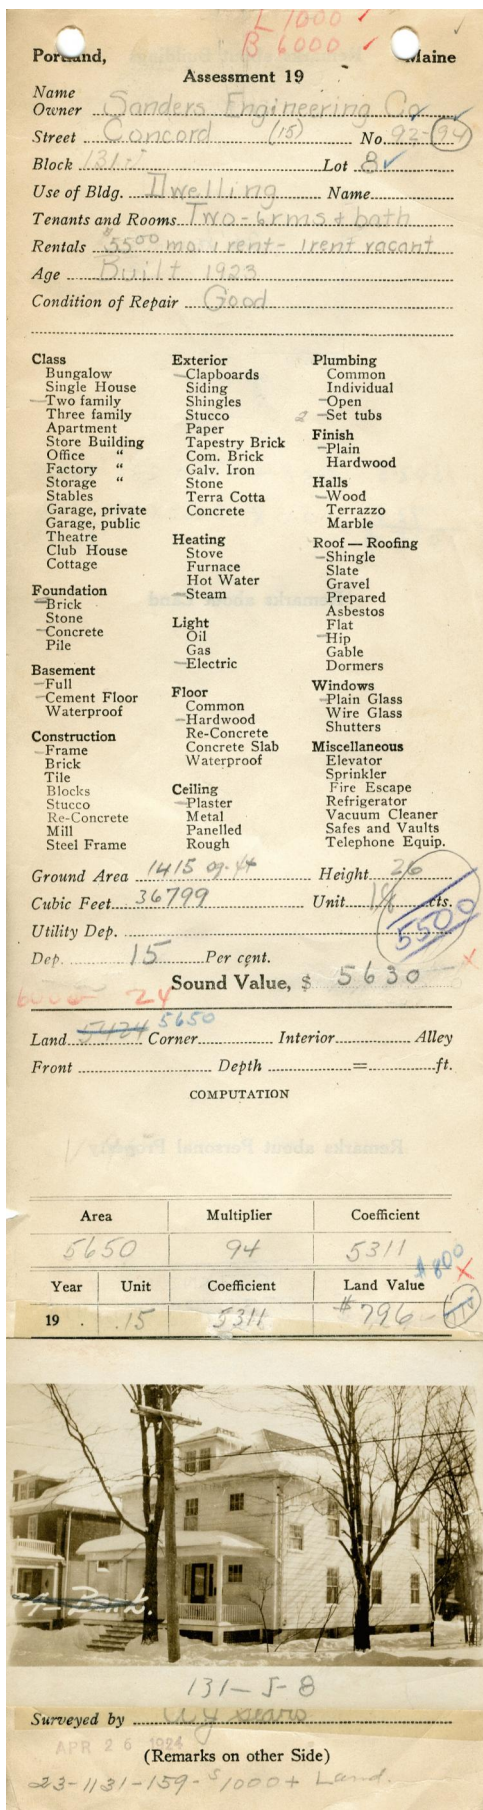 L 1000 ✓
B 6000 ✓
Portland, Maine
Assessment 19
Name
Owner Sanders Engineering Co
Street Concord (15) No. 92-94
Block 131-J Lot 8
Use of Bldg. Dwelling Name
Tenants and Rooms Two-6rms + bath
Rentals $55.00 mo. 1 rent - 1 rent vacant
Age Built 1923
Condition of Repair Good
Class
Bungalow
Single House
Two family
Three family
Apartment
Store Building
Office "
Factory "
Storage "
Stables
Garage, private
Garage, public
Theatre
Club House
Cottage
Foundation
Brick
Stone
Concrete
Pile
Basement
Full
Cement Floor
Waterproof
Construction
Frame
Brick
Tile
Blocks
Stucco
Re-Concrete
Mill
Steel Frame
Exterior
Clapboards
Siding
Shingles
Stucco
Paper
Tapestry Brick
Com. Brick
Galv. Iron
Stone
Terra Cotta
Concrete
Heating
Stove
Furnace
Hot Water
Steam
Light
Oil
Gas
Electric
Floor
Common
Hardwood
Re-Concrete
Concrete Slab
Waterproof
Ceiling
Plaster
Metal
Panelled
Rough
Plumbing
Common
Individual
Open
2 Set tubs
Finish
Plain
Hardwood
Halls
Wood
Terrazzo
Marble
Roof — Roofing
Shingle
Slate
Gravel
Prepared
Asbestos
Flat
Hip
Gable
Dormers
Windows
Plain Glass
Wire Glass
Shutters
Miscellaneous
Elevator
Sprinkler
Fire Escape
Refrigerator
Vacuum Cleaner
Safes and Vaults
Telephone Equip.
Ground Area 1415 sq. ft Height 26
Cubic Feet 36799 Unit 18 cts.
5500
Utility Dep.
Dep. 15 Per cent.
Sound Value, $ 5630
6000 24
Land 5424 5650 Corner Interior Alley
Front Depth = ft.
COMPUTATION
Area Multiplier Coefficient
5650 94 5311
$800
Year Unit Coefficient Land Value
19 .15 5311 $796
131-J-8
Surveyed by
APR 26 1924
(Remarks on other Side)
23-1131-159-$1000+ Land.